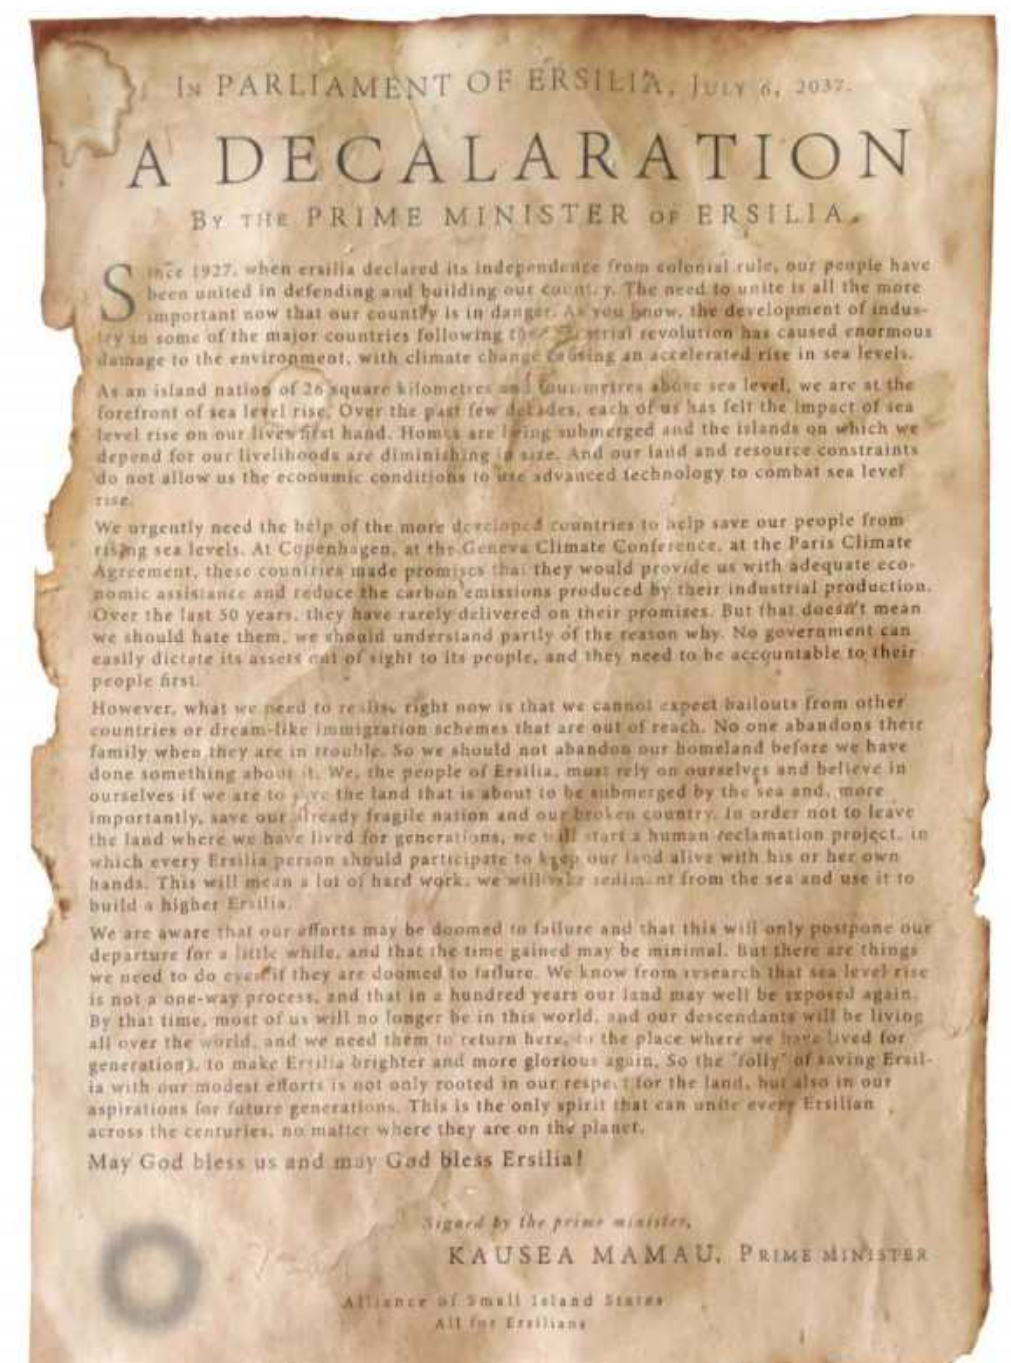 IN PARLIAMENT OF ERSILIA, JULY 6, 2037.
A DECALARATION
BY THE PRIME MINISTER OF ERSILIA.
Since 1927, when ersilia declared its independence from colonial rule, our people have
been united in defending and building our country. The need to unite is all the more
important now that our country is in danger. As you know, the development of indus-
try in some of the major countries following the industrial revolution has caused enormous
damage to the environment, with climate change causing an accelerated rise in sea levels.
As an island nation of 26 square kilometres and four metres above sea level, we are at the
forefront of sea level rise. Over the past few decades, each of us has felt the impact of sea
level rise on our lives first hand. Homes are being submerged and the islands on which we
depend for our livelihoods are diminishing in size. And our land and resource constraints
do not allow us the economic conditions to use advanced technology to combat sea level
rise.
We urgently need the help of the more developed countries to help save our people from
rising sea levels. At Copenhagen, at the Geneva Climate Conference, at the Paris Climate
Agreement, these countries made promises that they would provide us with adequate eco-
nomic assistance and reduce the carbon emissions produced by their industrial production.
Over the last 50 years, they have rarely delivered on their promises. But that doesn't mean
we should hate them, we should understand partly of the reason why. No government can
easily dictate its assets out of sight to its people, and they need to be accountable to their
people first.
However, what we need to realise right now is that we cannot expect bailouts from other
countries or dream-like immigration schemes that are out of reach. No one abandons their
family when they are in trouble. So we should not abandon our homeland before we have
done something about it. We, the people of Ersilia, must rely on ourselves and believe in
ourselves if we are to save the land that is about to be submerged by the sea and, more
importantly, save our already fragile nation and our broken country. In order not to leave
the land where we have lived for generations, we will start a human reclamation project, in
which every Ersilia person should participate to keep our land alive with his or her own
hands. This will mean a lot of hard work, we will take sediment from the sea and use it to
build a higher Ersilia.
We are aware that our efforts may be doomed to failure and that this will only postpone our
departure for a little while, and that the time gained may be minimal. But there are things
we need to do even if they are doomed to failure. We know from research that sea level rise
is not a one-way process, and that in a hundred years our land may well be exposed again.
By that time, most of us will no longer be in this world, and our descendants will be living
all over the world, and we need them to return here, to the place where we have lived for
generations, to make Ersilia brighter and more glorious again. So the "folly" of saving Ersil-
ia with our modest efforts is not only rooted in our respect for the land, but also in our
aspirations for future generations. This is the only spirit that can unite every Ersilian
across the centuries, no matter where they are on the planet.
May God bless us and may God bless Ersilia!
Signed by the prime minister,
KAUSEA MAMAU, PRIME MINISTER
Alliance of Small Island States
All for Ersilians